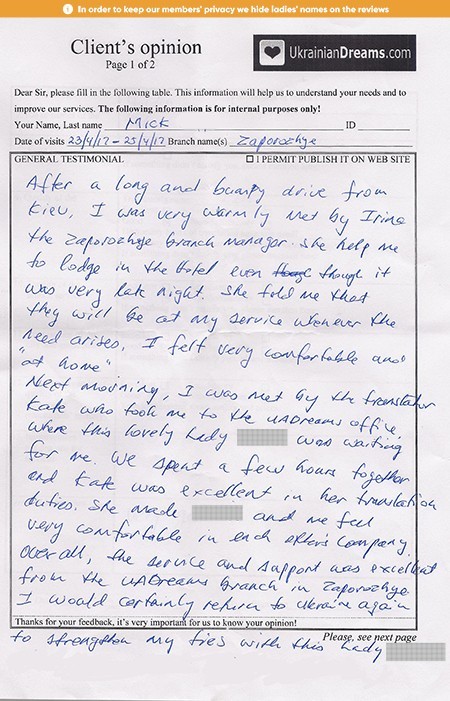 In order to keep our members' privacy we hide ladies' names on the reviews
Client's opinion
Page 1 of 2
UkrainianDreams.com
Dear Sir, please fill in the following table. This information will help us to understand your needs and to
improve our services. The following information is for internal purposes only!
Your Name, Last name Mick ID
Date of visits 23/4/17 - 25/4/17 Branch name(s) Zaporozhye
GENERAL TESTIMONIAL I PERMIT PUBLISH IT ON WEB SITE
After a long and bumpy drive from
Kiev, I was very warmly met by Irina
the Zaporozhye branch manager. She help me
to lodge in the Hotel even though it
was very late night. She told me that
they will be at my service whenever the
need arises. I felt very comfortable and
"at home"
Next morning, I was met by the translator
Kate who took me to the UADreams office,
where this lovely Lady was waiting
for me. We spent a few hours together
and Kate was excellent in her translation
duties. She made and me feel
very comfortable in each other's company.
Overall, the service and support was excellent
from the UADreams branch in Zaporozhye.
I would certainly return to Ukraine again
Thanks for your feedback, it's very important for us to know your opinion!
to strengthen my ties with this Lady
Please, see next page